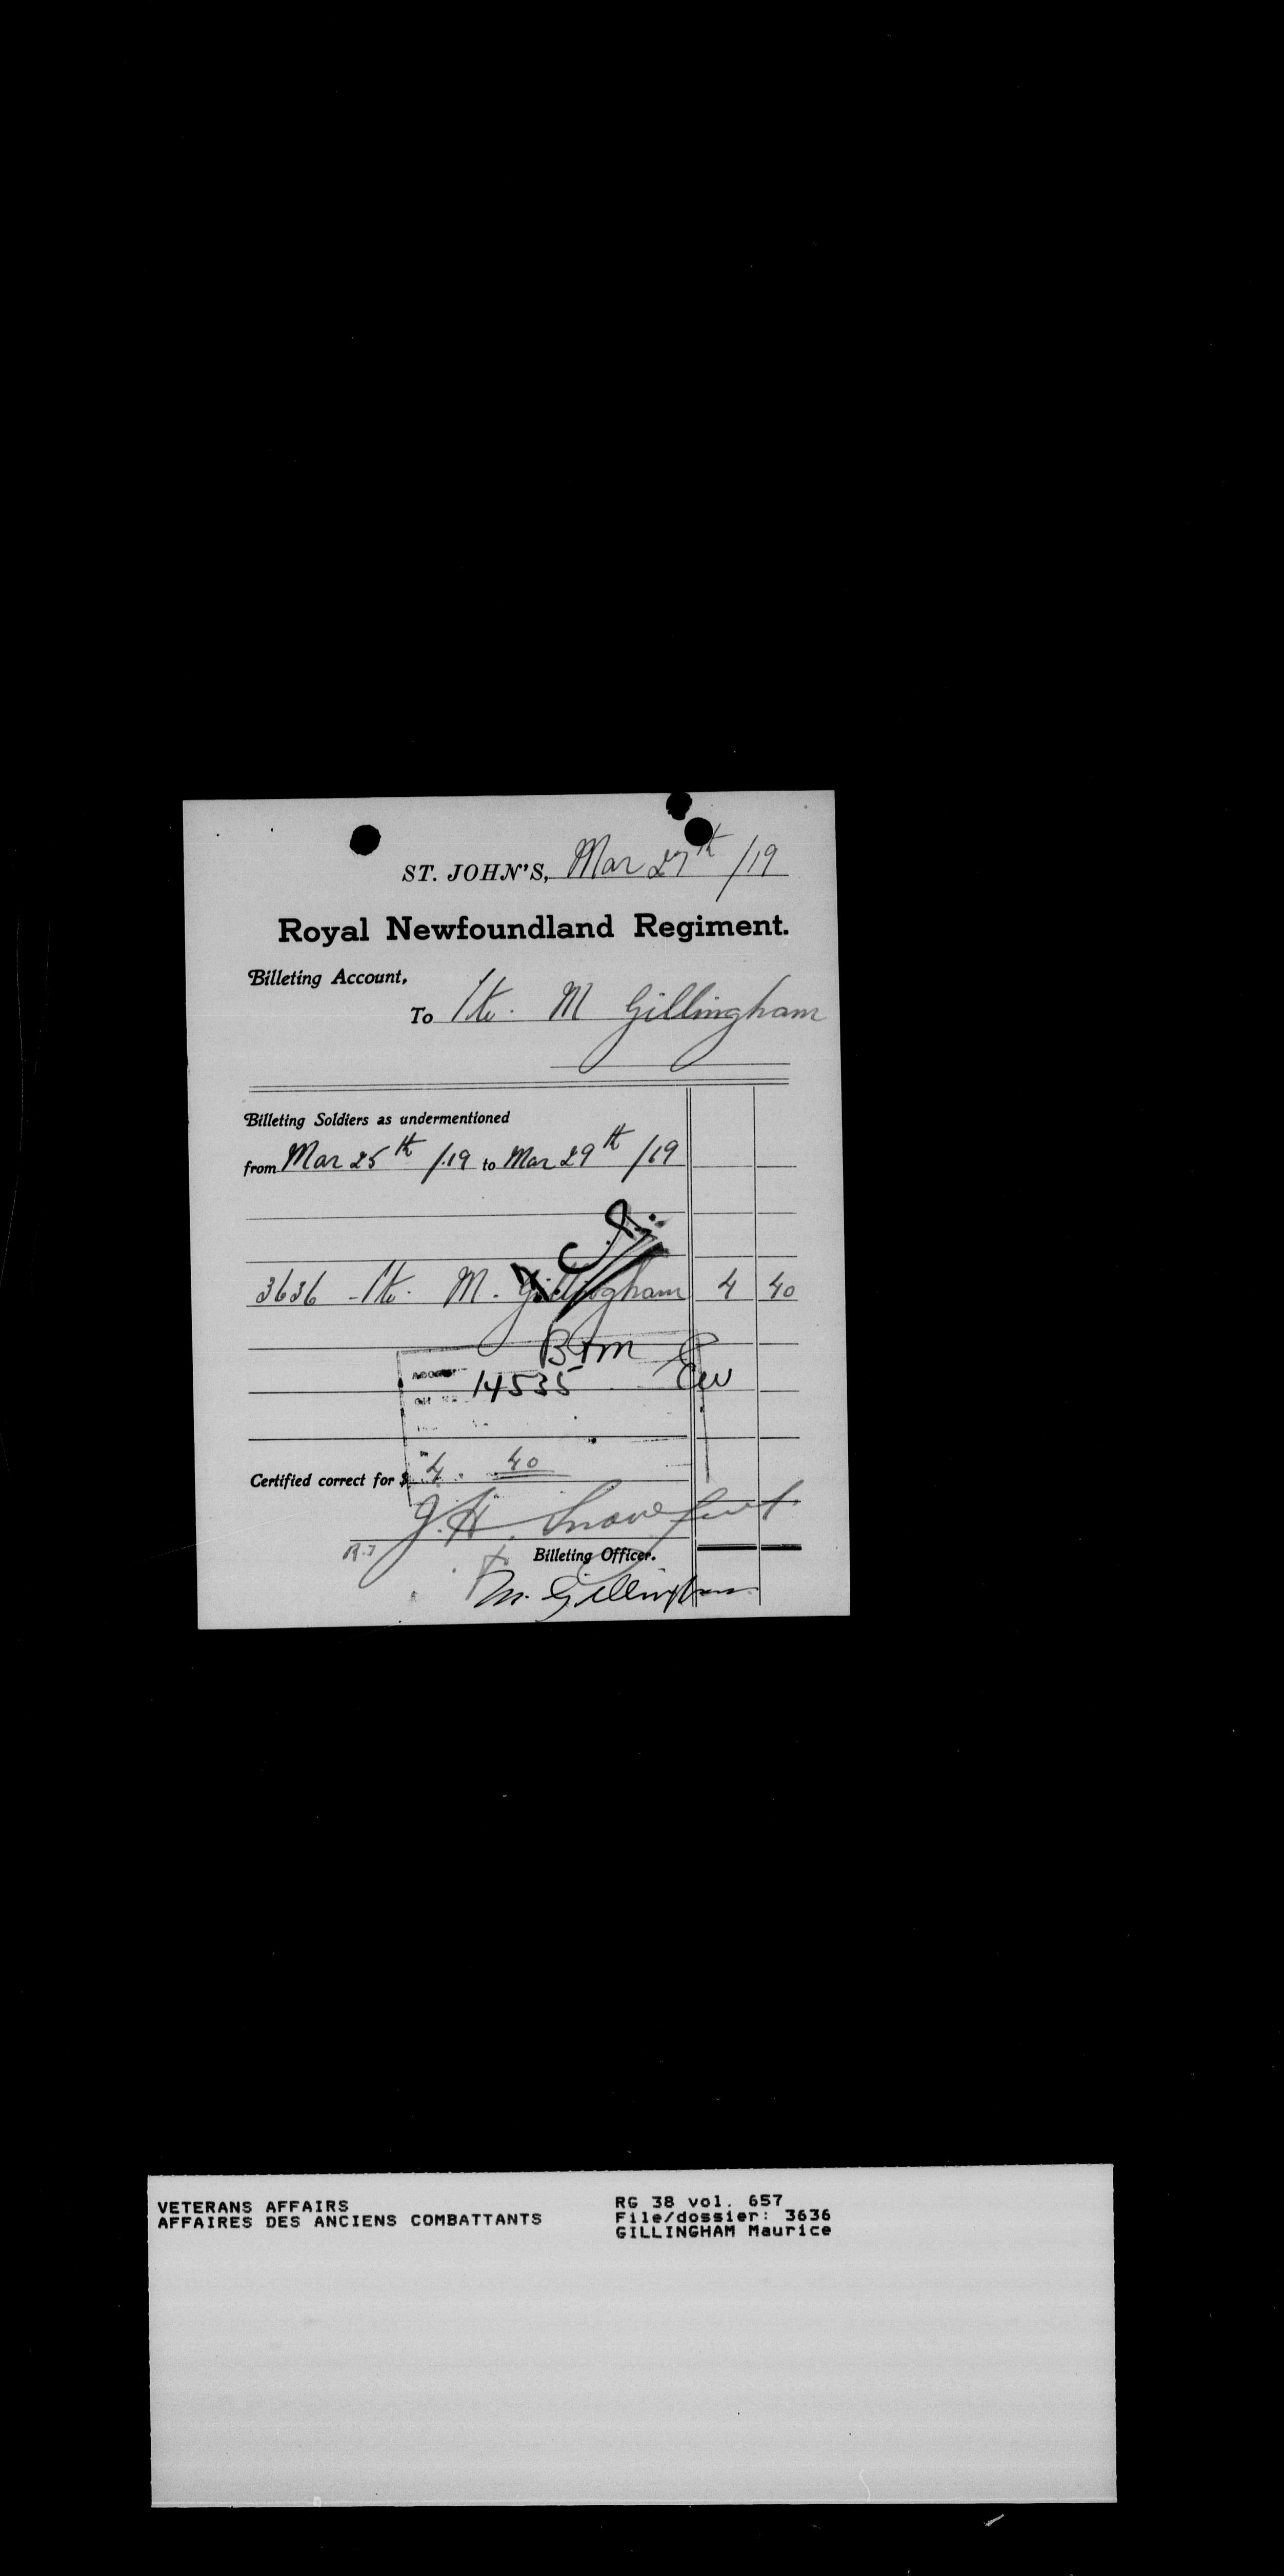 ST. JOHN'S, Mar 27th /19
Royal Newfoundland Regiment.
Billeting Account,
To Pte. M Gillingham
Billeting Soldiers as undermentioned
from Mar 25th /19 to Mar 29th /19
3636 Pte. M. Gillingham 4 40
B+M
14535 EW
Certified correct for $ 4. 40
J. H. Snow
Billeting Officer.
M. Gillingham
VETERANS AFFAIRS
AFFAIRES DES ANCIENS COMBATTANTS
RG 38 vol. 657
File/dossier: 3636
GILLINGHAM Maurice